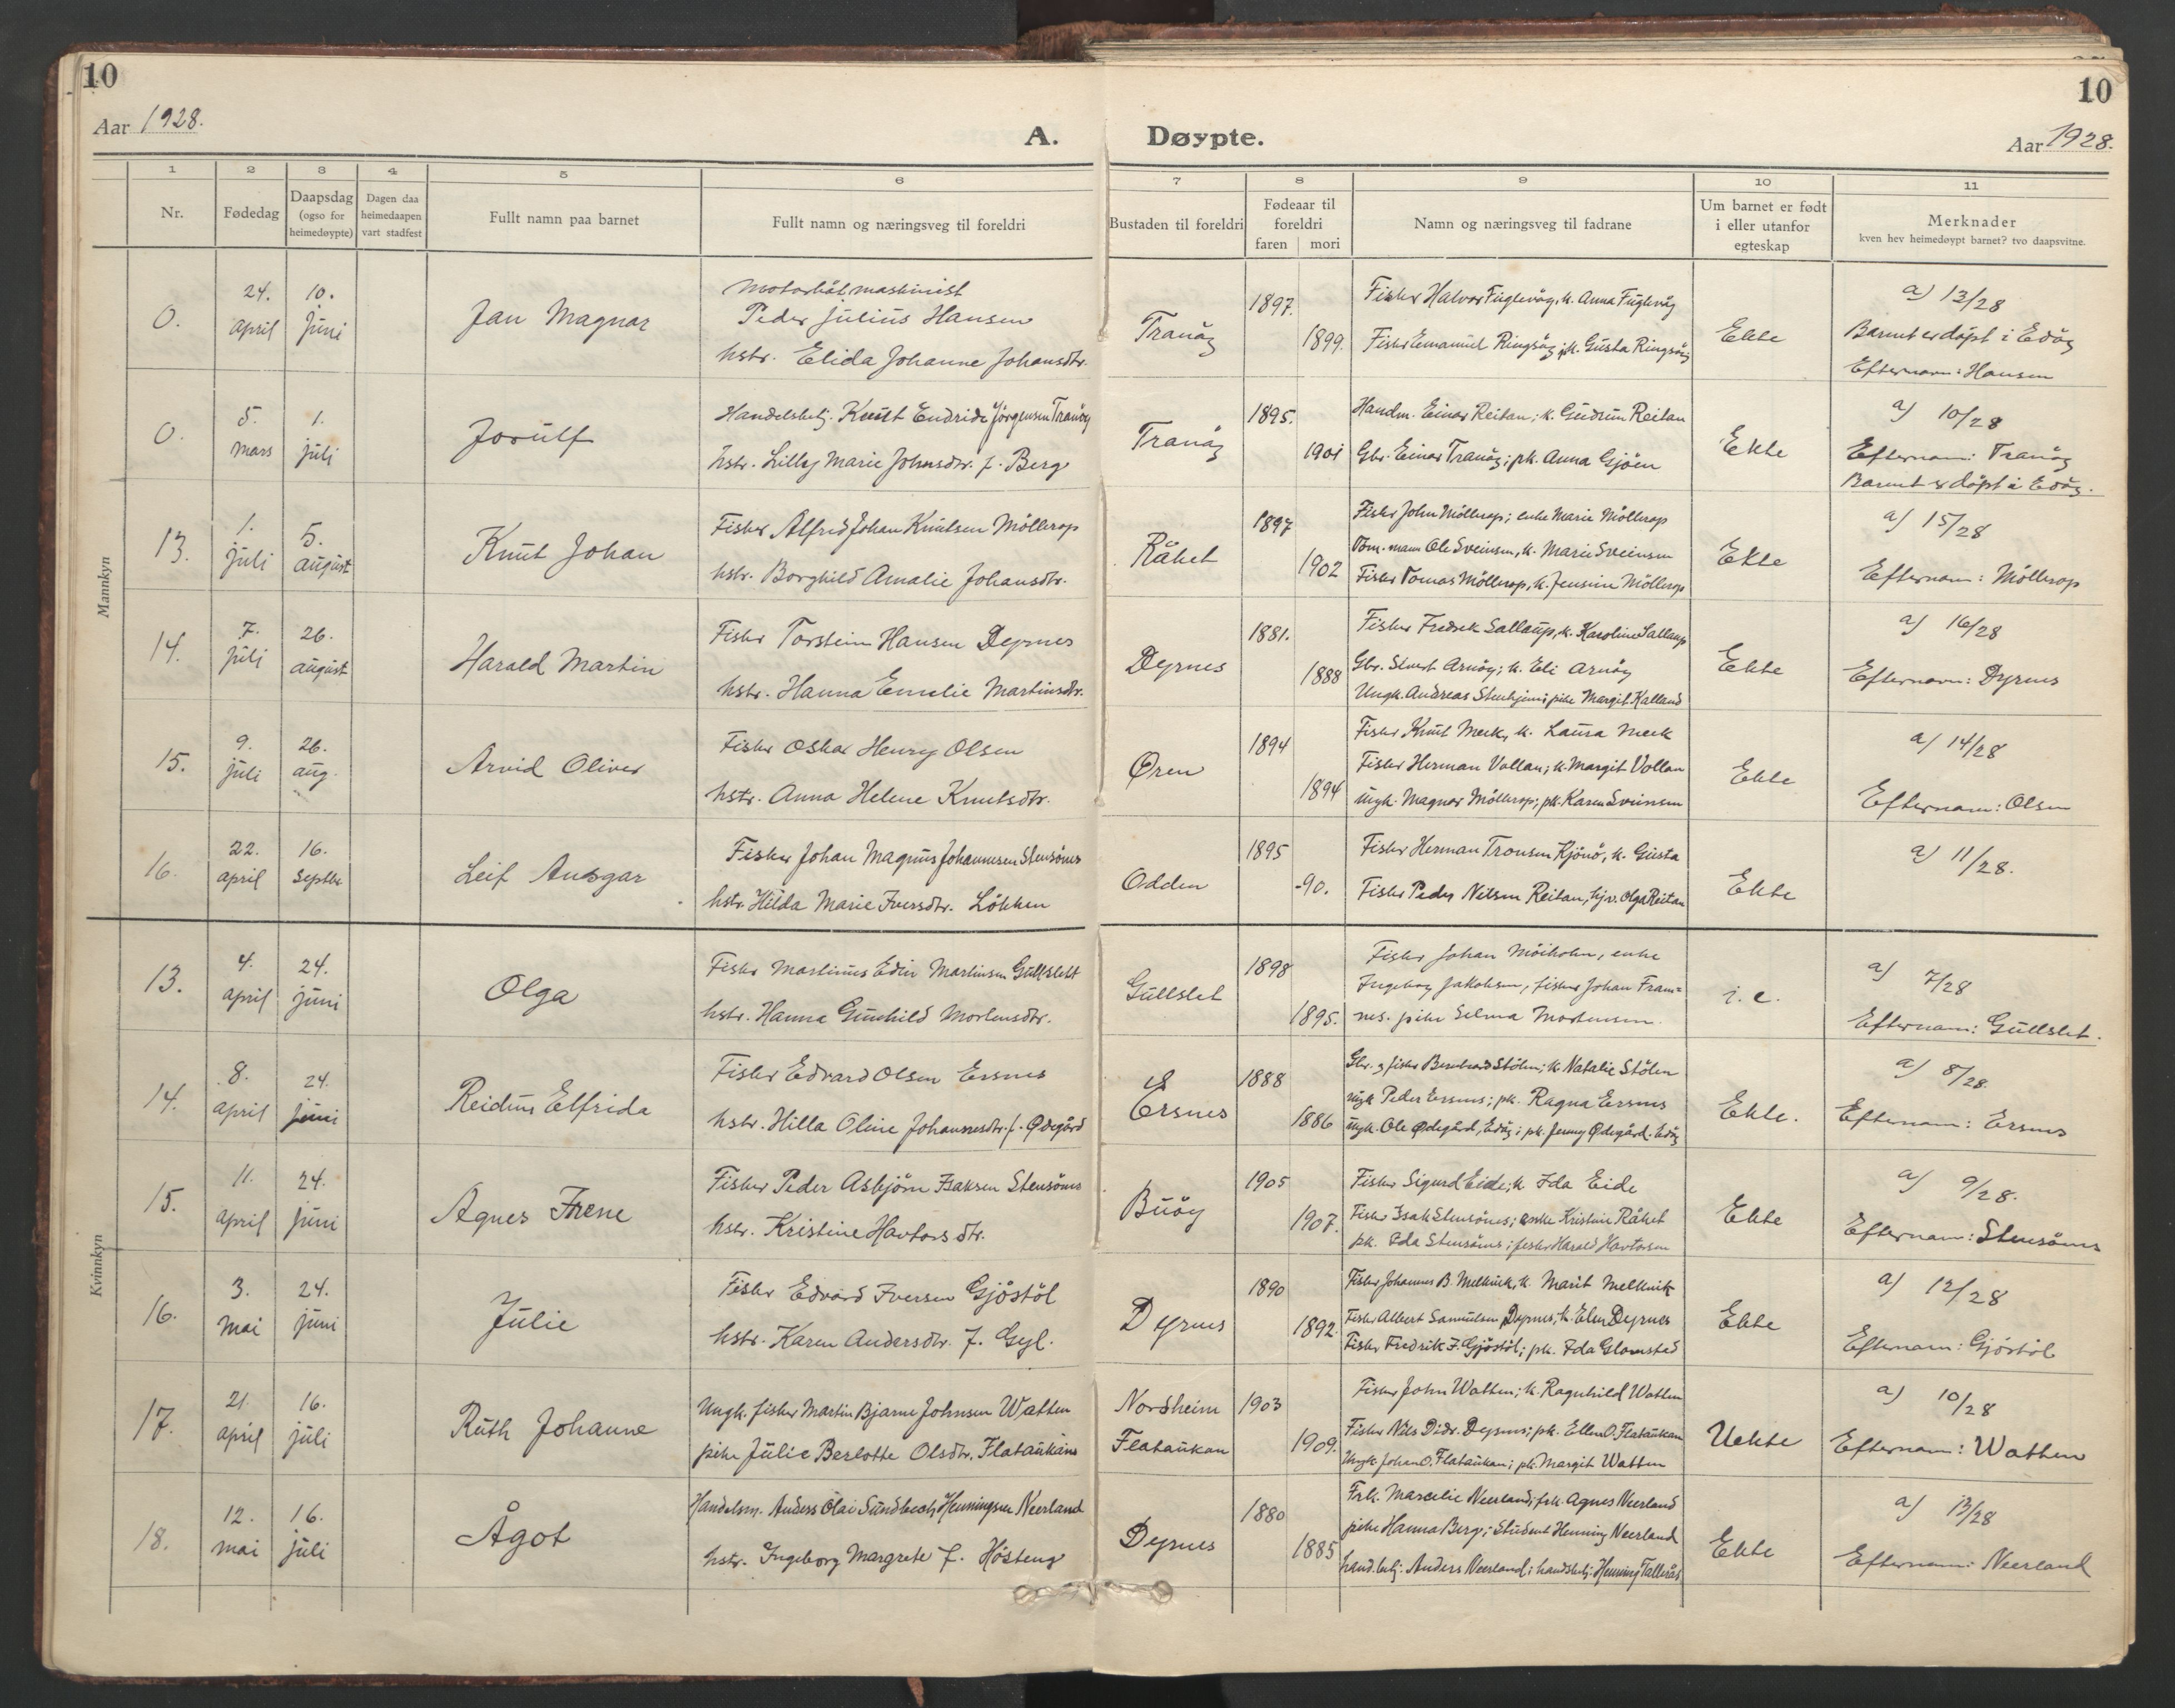 10
10
Aar 1928.
A. Døypte.
Aar 1928.
1 2 3 4 5 6 7 8 9 10 11
Nr.
Fødedag
Daapsdag (ogso for heimedøypte)
Dagen daa heimedaapen vart stadfest
Fullt namn paa barnet
Fullt namn og næringsveg til foreldri
Bustaden til foreldri
Fødeaar til foreldri
faren mori
Namn og næringsveg til fadrane
Um barnet er født i eller utanfor egteskap
Merknader
kven hev heimedøypt barnet? tvo daapsvitne.
Mannkyn
0. 24. april 10. juni Jan Magnar
Motorbåtmaskinist
Peder Julius Hansen
hstr. Elida Johanne Johansdtr.
Tranöy 1897. 1899.
Fisker Halvor Fuglevåg, k. Anna Fuglevåg
Fisker Emanuel Ringsöy; k. Gusta Ringsöy
Ekte
a) 13/28
Barnet er döpt i Edöy
Efternavn: Hansen
0. 5. mars 1. juli Jorulf
Handelsbetj. Knut Endride Jörgensen Tranöy
hstr. Lilly Marie Johnsdtr. f. Berg
Tranöy 1895. 1901
Handm. Einar Reitan; k. Gudrun Reitan
Gbr. Einar Tranöy; pk. Anna Gjöen
Ekte
a) 10/28
Efternavn: Tranöy
Barnet er döpt i Edöy.
13. 1. juli 5. august Knut Johan
Fisker Alfred Johan Knutsen Möllerop
hstr. Borghild Amalie Johansdtr.
Råket 1897 1902
Fisker John Möllerop; enke Marie Möllerop
mann Ole Sveinsen, k. Marie Sveinsen
Fisker Tomas Möllerop, k. Jensine Möllerop
Ekte
a) 15/28
Efternam: Möllerop
14. 7. juli 26. august Harald Martin
Fisker Torstein Hansen Dyrnes
hstr. Hanna Emelie Martinsdtr.
Dyrnes 1881. 1888
Fisker Fredrek Sallaup, k. Karoline Sallaup
Gbr. Sivert Arnöy; k. Eli Arnöy
Ungk. Andreas Stenhjem; pike Margit Kalland
Ekte
a) 16/28
Efternavn: Dyrnes
15. 9. juli 26. aug. Arvid Oliver
Fisker Oskar Henry Olsen
hstr. Anna Helene Knutsdtr.
Øren 1894 1894
Fisker Knut Merk, k. Laura Merk
Fisker Herman Vollan; k. Margit Vollan
ungk. Magnar Möllerop; pk. Karen Sveinsen
Ekte
a) 14/28
Efternam: Olsen
16. 22. april 16. septbr Leif Ansgar
Fisker Johan Magnus Johannesen Stensönes
hstr. Hilda Marie Iversdtr. Lökken
Odden 1895 -90.
Fisker Herman Tronsen Kjönö, k. Gusta
Fisker Peder Nilsen Reitan, hjv. Olga Reitan
Ekte
a) 11/28.
Kvinnkyn
13. 4. april 24. juni Olga
Fisker Martinus Edin Martinsen Gullslett
hstr. Hanna Gunhild Mortensdtr.
Gullslet 1898 1895.
Fisker Johan Möikolm, enke
Ingeborg Jakobsen, fisker Johan Fram=
nes. pike Selma Mortensen.
i. e.
a) 7/28
Efternam: Gullslet.
14. 8. april 24. juni Reidun Elfrida
Fisker Edvard Olsen Ersnes
hstr. Hilla Oline Johannesdtr. f. Ødegård
Ersnes 1888 1886
Gbr. og fisker Bernhard Stölen; k. Natalie Stölen
ungk Peder Ersnes; pk. Ragna Ersnes
ungk. Ole Ødegård, Edöy; pk. Jenny Ødegård. Edöy
Ekte.
a) 8/28.
Efternam: Ersnes
15. 11. april 24. juni Agnes Irene
Fisker Peder Asbjörn Isaksen Stensönes
hstr. Kristine Havtorsdtr.
Buöy 1905 1907.
Fisker Sigurd Eide; k Ida Eide
Fisker Isak Stensönes; enke Kristine Råket
pk. Ida Stensönes; fisker Harald Havtorsen
Ekte
a) 9/28.
Efternam: Stensönes
16. 3. mai 24. juni Julie
Fisker Edvard Iversen Gjöstöl
hstr. Karen Andersdtr. f. Gyl.
Dyrnes 1890 1892.
Fisker Johannes B. Melkvik, k. Marit Melkvik
Fisker Albert Samuelsen Dyrnes; k. Elen Dyrnes
Fisker Fredrik I. Gjöstöl; pk. Ida Glomsted
Ekte
a) 12/28
Efternam: Gjöstöl
17. 21. april 16. juli Ruth Johanne
Ungk. fisker Martin Bjarne Johnsen Watten
pike Julie Berlotte Olsdtr. Flataukan
Nordheim 1903
Flataukan 1909.
Fisker John Watten; k. Ragnhild Watten
Fisker Nils Didr. Dyrnes; pk. Ellen O. Flataukan
Ungk Johan O. Flataukan; pk. Margit Watten
Uekte
a) 10/28
Efternam: Watten
18. 12. mai 16. juli Ågot
Handelsm. Anders Olai Sundbech Henningsen Neerland
hstr. Ingeborg Margrete f. Hösteng
Dyrnes 1880 1885
Frk. Marcelie Neerland; frk. Agnes Neerland
pike Hanna Berg; Student Henning Neerland
hand.betj. Anders Neerland; handsbetj. Henning Tallerås
Ekte
a) 13/28
Efternam: Neerland